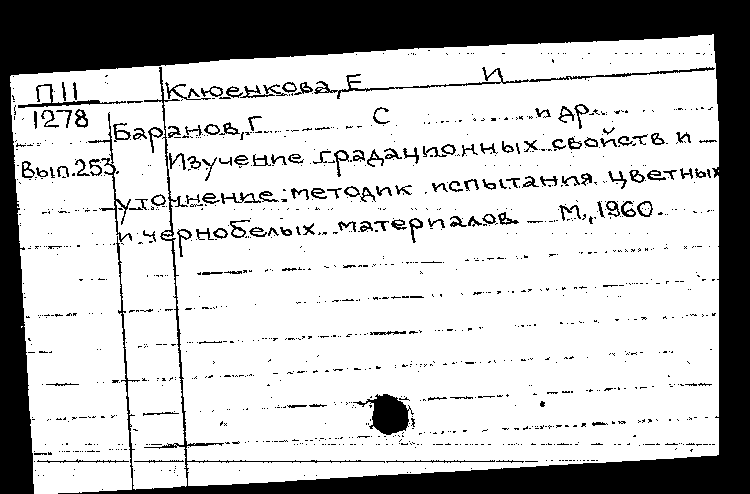 П11 Клюенкова, Е И
1278 Баранов, Г С и др.
Вып.253. Изучение градационных свойств и
уточнение методик испытания цветных
и чернобелых материалов М., 1960.